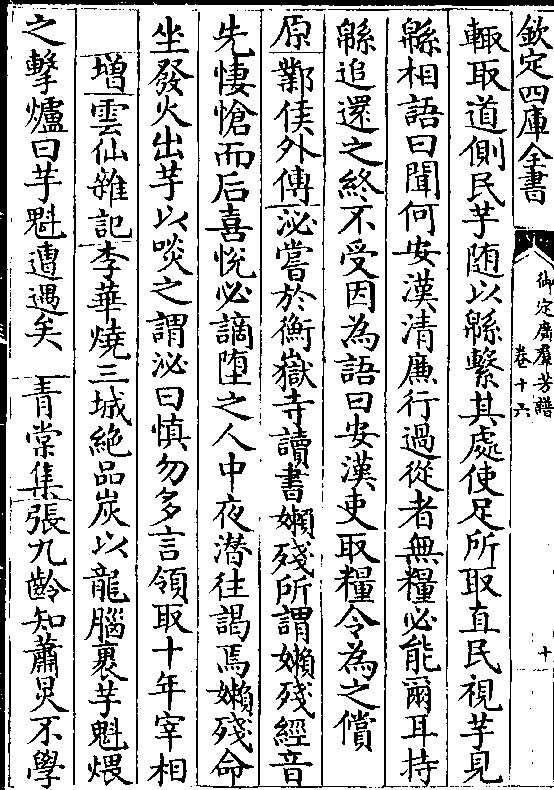 欽定四庫全書
御定廣羣芳譜
卷十六
十
輙取道側民芋随以緜繫其處使足所取直民視芋見
緜相語曰聞何安漢清廉行過從者無糧必能爾耳持
緜追還之終不受因為語曰安漢吏取糧令為之償
原鄴侯外傳泌嘗於衡嶽寺讀書嬾殘所謂嬾殘經音
先悽愴而后喜悅必謫墮之人中夜潜往謁焉嬾殘命
坐發火出芋以啖之謂泌曰慎勿多言領取十年宰相
增雲仙雜記李華燒三城絶品炭以龍腦裹芋魁煨
之擊爐曰芋魁遭遇矣　青棠集張九齡知蕭炅不學